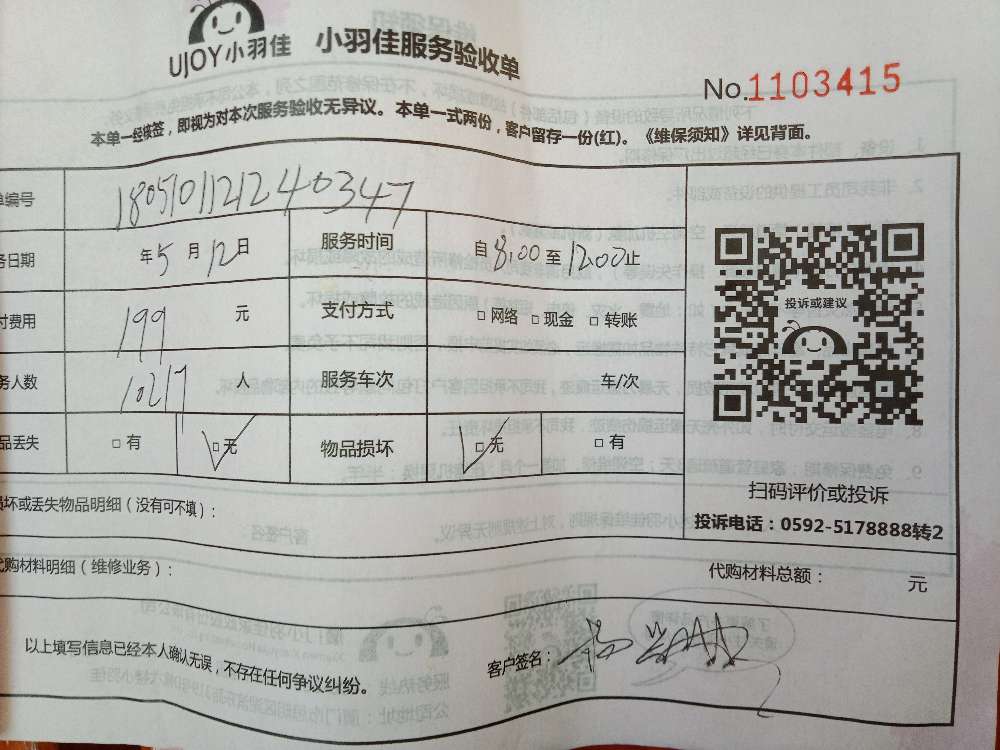 UJOY小羽佳 小羽佳服务验收单
No.1103415
本单一经核签，即视为对本次服务验收无异议。本单一式两份，客户留存一份(红)。《维保须知》详见背面。
单编号 180510112124 0347
务日期 年5月12日 服务时间 自8:00至12:00止
付费用 199元 支付方式 □网络 □现金 □转账
务人数 人 服务车次 车/次
品丢失 □有 □无 物品损坏 □无 □有
投诉或建议
扫码评价或投诉
投诉电话：0592-5178888转2
损坏或丢失物品明细（没有可不填）：
代购材料明细（维修业务）：
代购材料总额： 元
以上填写信息已经本人确认无误，不存在任何争议纠纷。
客户签名：